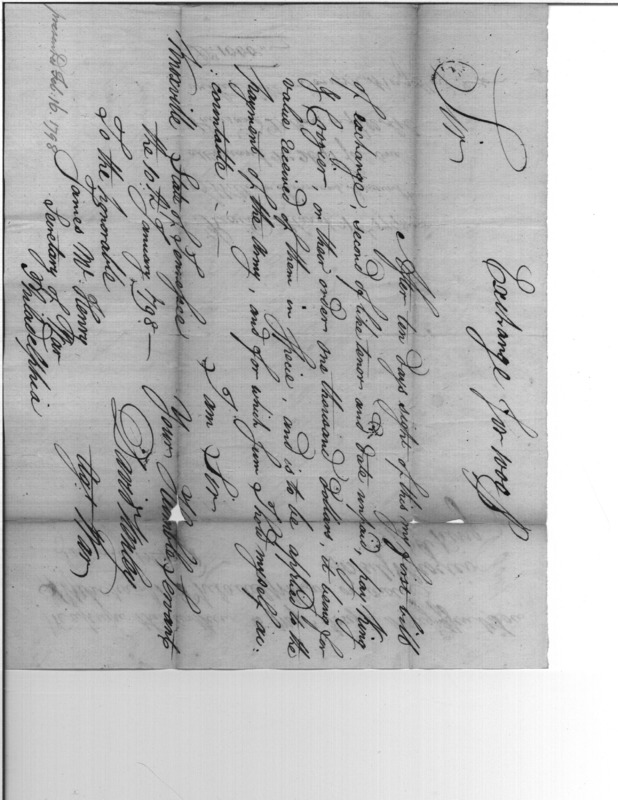 Exchange for 1000 D
Sir
After ten days sight of this my first bill
of exchange, second of like tenor and date unpaid, pay King
& Crozier, or their order one thousand Dollars, it being for
value received of them in Specie, and is to be applied to the
payment of the Army, and for which sum I hold myself ac-
:countable -
I am Sir
Knoxville State of Tennessee
Your Humble Servant
the 10.th of January 1798 —
David Henley
Agt War
To the Honorable
James Mc. Henry
Secretary of War
Philadelphia
presented Feb. 16. 1798
1000.